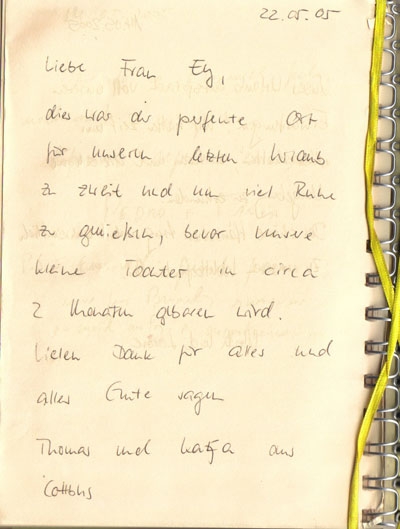 22.05.05
Liebe Frau Ey,
dies war der perfekte Ort
für unseren letzten Urlaub
zu zweit und um viel Ruhe
zu genießen, bevor unsere
kleine Tochter in circa
2 Monaten geboren wird.
Vielen Dank für alles und
alles Gute sagen
Thomas und Katja aus
Cottbus